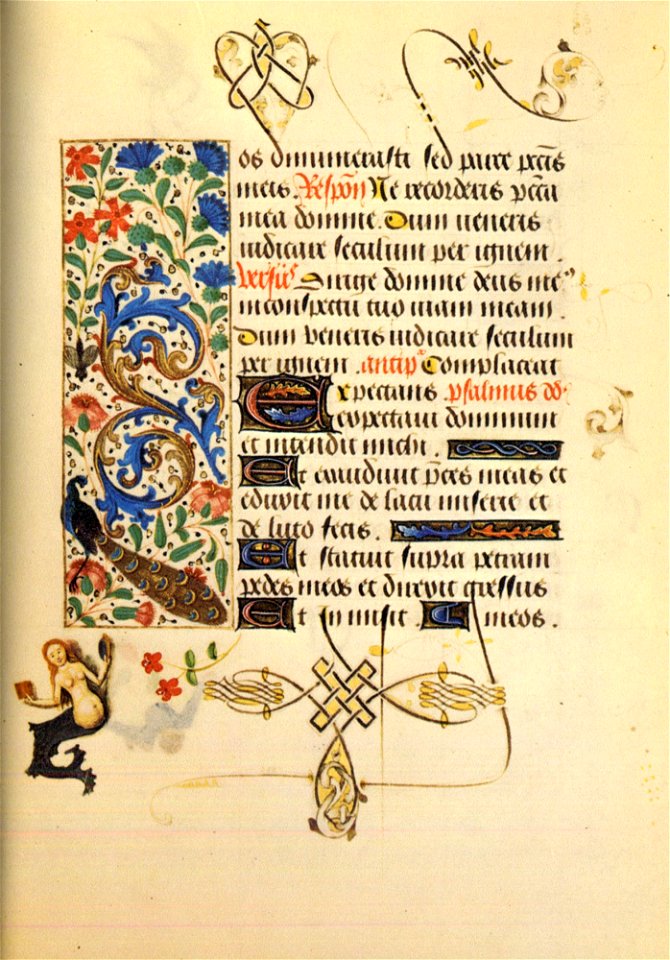 os dinumerasti sed parce pctis
meis. Respon Ne recorderis pcta
mea domine. Dum veneris
iudicare seculum per ignem.
Versic Dirige domine deus me⁹
in conspectu tuo viam meam.
Dum veneris iudicare seculum
per ignem. antip Complaceat
Expectans psalmus dd.
expectavi dominum
et intendit michi.
Et exaudivit preces meas et
eduxit me de lacu miserie et
de luto fecis.
Et statuit supra petram
pedes meos et direxit gressus
Et in misit. meos.